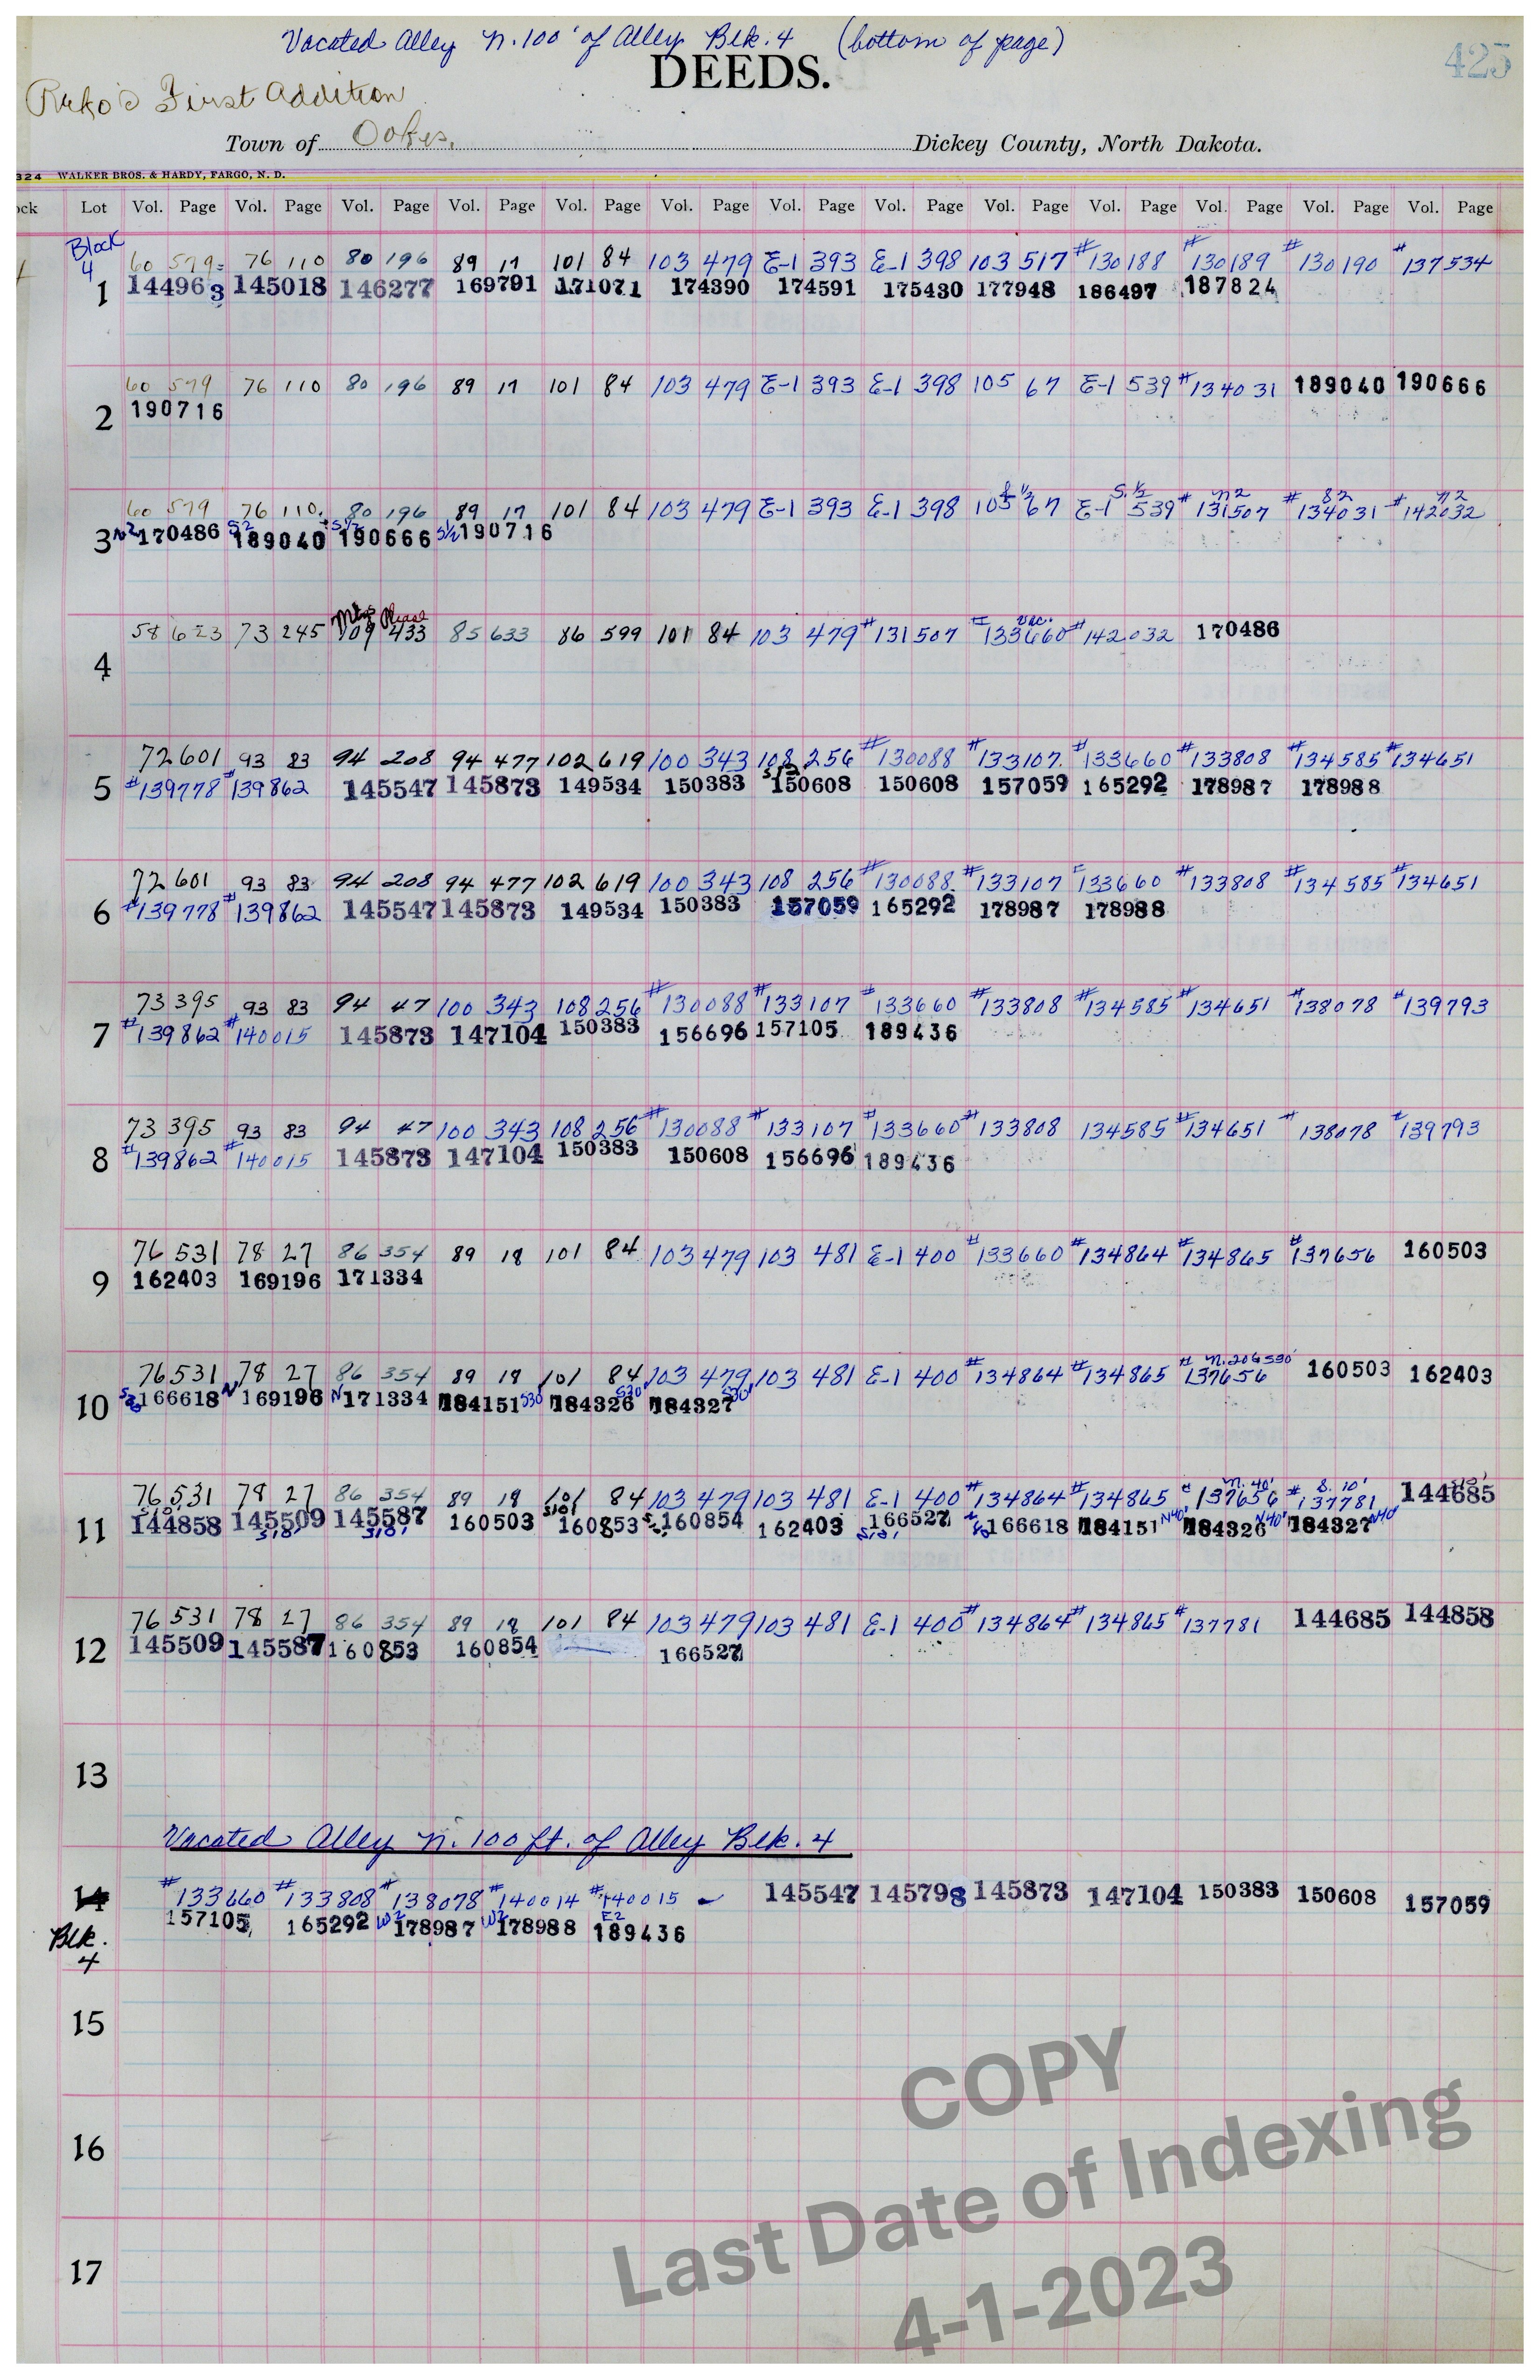 Vacated Alley N. 100' of Alley Blk. 4 (bottom of page)
425
DEEDS.
First Addition
Town of Oakes, Dickey County, North Dakota.
324 WALKER BROS. & HARDY, FARGO, N. D.
ock Lot Vol. Page Vol. Page Vol. Page Vol. Page Vol. Page Vol. Page Vol. Page Vol. Page Vol. Page Vol. Page Vol. Page Vol. Page Vol. Page
Block 4
60 579 76 110 80 196 89 17 101 84 103 479 E-1 393 E-1 398 103 517 #130188 #130189 #130190 #137534
1 144963 145018 146277 169791 171071 174390 174591 175430 177948 186497 187824
60 579 76 110 80 196 89 17 101 84 103 479 E-1 393 E-1 398 105 67 E-1 539 #134031 189040 190666
2 190716
S 1/2 S. 1/2 N2 S2 N2
60 579 76 110 80 196 89 17 101 84 103 479 E-1 393 E-1 398 105 67 E-1 539 #131507 #134031 #142032
3 N2 170486 S2 189040 S 1/2 190666 S 1/2 190716
Vac.
58 623 73 245 109 433 85 633 86 599 101 84 103 479 #131507 #133660 #142032 170486
4
72 601 93 83 94 208 94 477 102 619 100 343 108 256 #130088 #133107 #133660 #133808 #134585 #134651
5 #139778 #139862 145547 145873 149534 150383 150608 150608 157059 165292 178987 178988
72 601 93 83 94 208 94 477 102 619 100 343 108 256 #130088 #133107 133660 #133808 #134585 #134651
6 #139778 #139862 145547 145873 149534 150383 157059 165292 178987 178988
73 395 93 83 94 47 100 343 108 256 #130088 #133107 #133660 #133808 #134585 #134651 #138078 #139793
7 #139862 #140015 145873 147104 150383 156696 157105 189436
73 395 93 83 94 47 100 343 108 256 #130088 #133107 #133660 #133808 134585 #134651 #138078 #139793
8 #139862 #140015 145873 147104 150383 150608 156696 189436
76 531 78 27 86 354 89 18 101 84 103 479 103 481 E-1 400 #133660 #134864 #134865 #137656 160503
9 162403 169196 171334
76 531 78 27 86 354 89 18 101 84 103 479 103 481 E-1 400 #134864 #134865 #137656 160503 162403
10 166618 N 169196 N 171334 184151 S30' 184326 S30' 184327 S30'
N. 40' S. 10'
76 531 78 27 86 354 89 18 101 84 103 479 103 481 E-1 400 #134864 #134865 #137656 #137781 144685
11 144858 145509 145587 160503 160853 160854 162403 166527 166618 184151 N40' 184326 N40' 184327 N40'
S10' S10' S10'
76 531 78 27 86 354 89 18 101 84 103 479 103 481 E-1 400 #134864 #134865 #137781 144685 144858
12 145509 145587 160853 160854 166527
13
Vacated Alley N. 100 ft. of Alley Blk. 4
14 #133660 #133808 #138078 #140014 #140015 145547 145798 145873 147104 150383 150608 157059
157105 165292 W2 178987 W2 178988 E2 189436
Blk. 4
15
16
17
COPY
Last Date of Indexing
4-1-2023